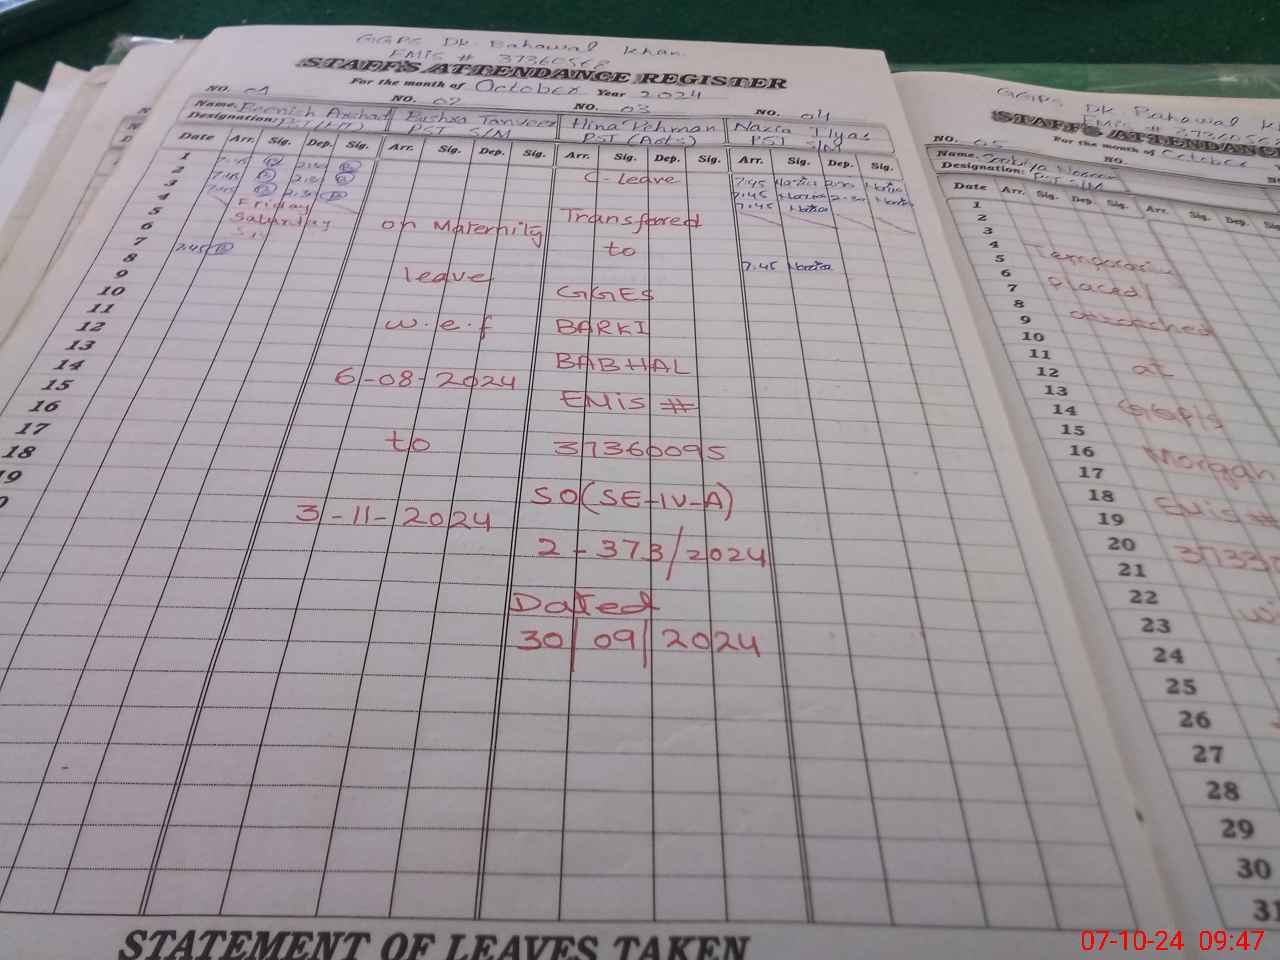 GGPS Dk. Bahawal Khan
EMIS # 37360568
STAFF'S ATTENDANCE REGISTER
For the month of October Year 2024
NO. 01 NO. 02 NO. 03 NO. 04
Name: Beenish Arshad Bushra Tanveer Hina Rehman Nazia Ilyas
Designation: PST S/M PST (Arts) PST S/M
Date Arr. Sig. Dep. Sig. Arr. Sig. Dep. Sig. Arr. Sig. Dep. Sig. Arr. Sig. Dep. Sig.
1 7:45 C-leave 7:45 Nazia Nazia
2 7:45 7:45 Nazia 2:30 Nazia
3 7:45 2:30 7:45 Nazia
4 Friday
5 Saturday on Maternity Transfered
6 to
7 7:45 7:45 Nazia
8 leave
9 GGES
10
11 w.e.f BARKI
12 BABHAL
13
14 6-08-2024 EMIS #
15
16 to 37360095
17
18 SO(SE-IV-A)
19 3-11-2024
2-373/2024
Dated
30/09/2024
STATEMENT OF LEAVES TAKEN
GGPS Dk. Bahawal
EMIS # 3736056
STAFF'S ATTENDANCE
For the month of October
NO. 05 NO.
Name.
Designation: PST S/M
Date Arr. Sig. Dep. Sig. Arr. Sig. Dep.
1
2
3
4 Temporarily
5
6 placed
7
8
9
10
11
12 at
13
14 GGPS
15
16 Morgah
17
18 EMIS #
19
20
21
22
23
24
25
26
27
28
29
30
31
07-10-24 09:47